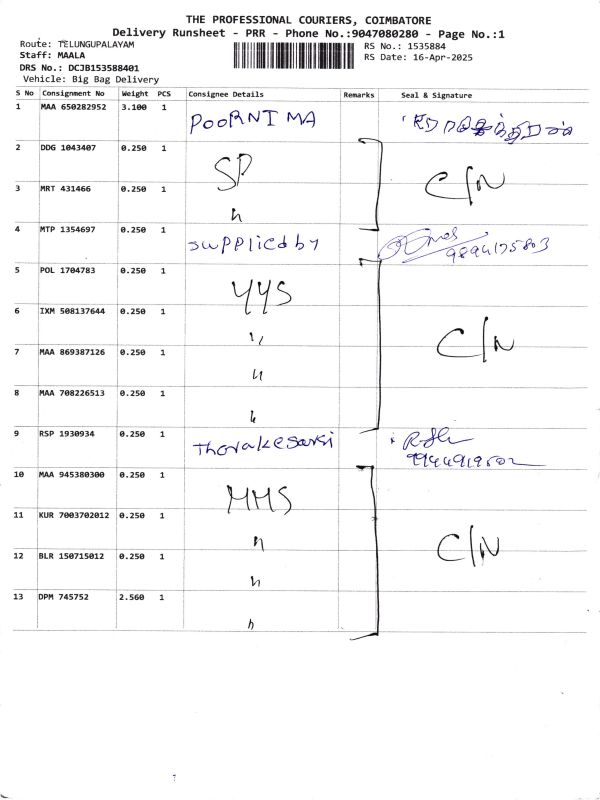 THE PROFESSIONAL COURIERS, COIMBATORE
Delivery Runsheet - PRR - Phone No.:9047080280 - Page No.:1
Route: TELUNGUPALAYAM
RS No.: 1535884
Staff: MAALA
RS Date: 16-Apr-2025
DRS No.: DCJB153588401
Vehicle: Big Bag Delivery
S No Consignment No Weight PCS Consignee Details Remarks Seal & Signature
1 MAA 650282952 3.100 1 POORNIMA
2 DDG 1043407 0.250 1 SP C/N
3 MRT 431466 0.250 1 "
4 MTP 1354697 0.250 1 supplied by 9894175803
5 POL 1704783 0.250 1 YYS
6 IXM 508137644 0.250 1 " C/N
7 MAA 869387126 0.250 1 "
8 MAA 708226513 0.250 1 "
9 RSP 1930934 0.250 1
10 MAA 945380300 0.250 1 MMS
11 KUR 7003702012 0.250 1 " C/N
12 BLR 150715012 0.250 1 "
13 DPM 745752 2.560 1 "